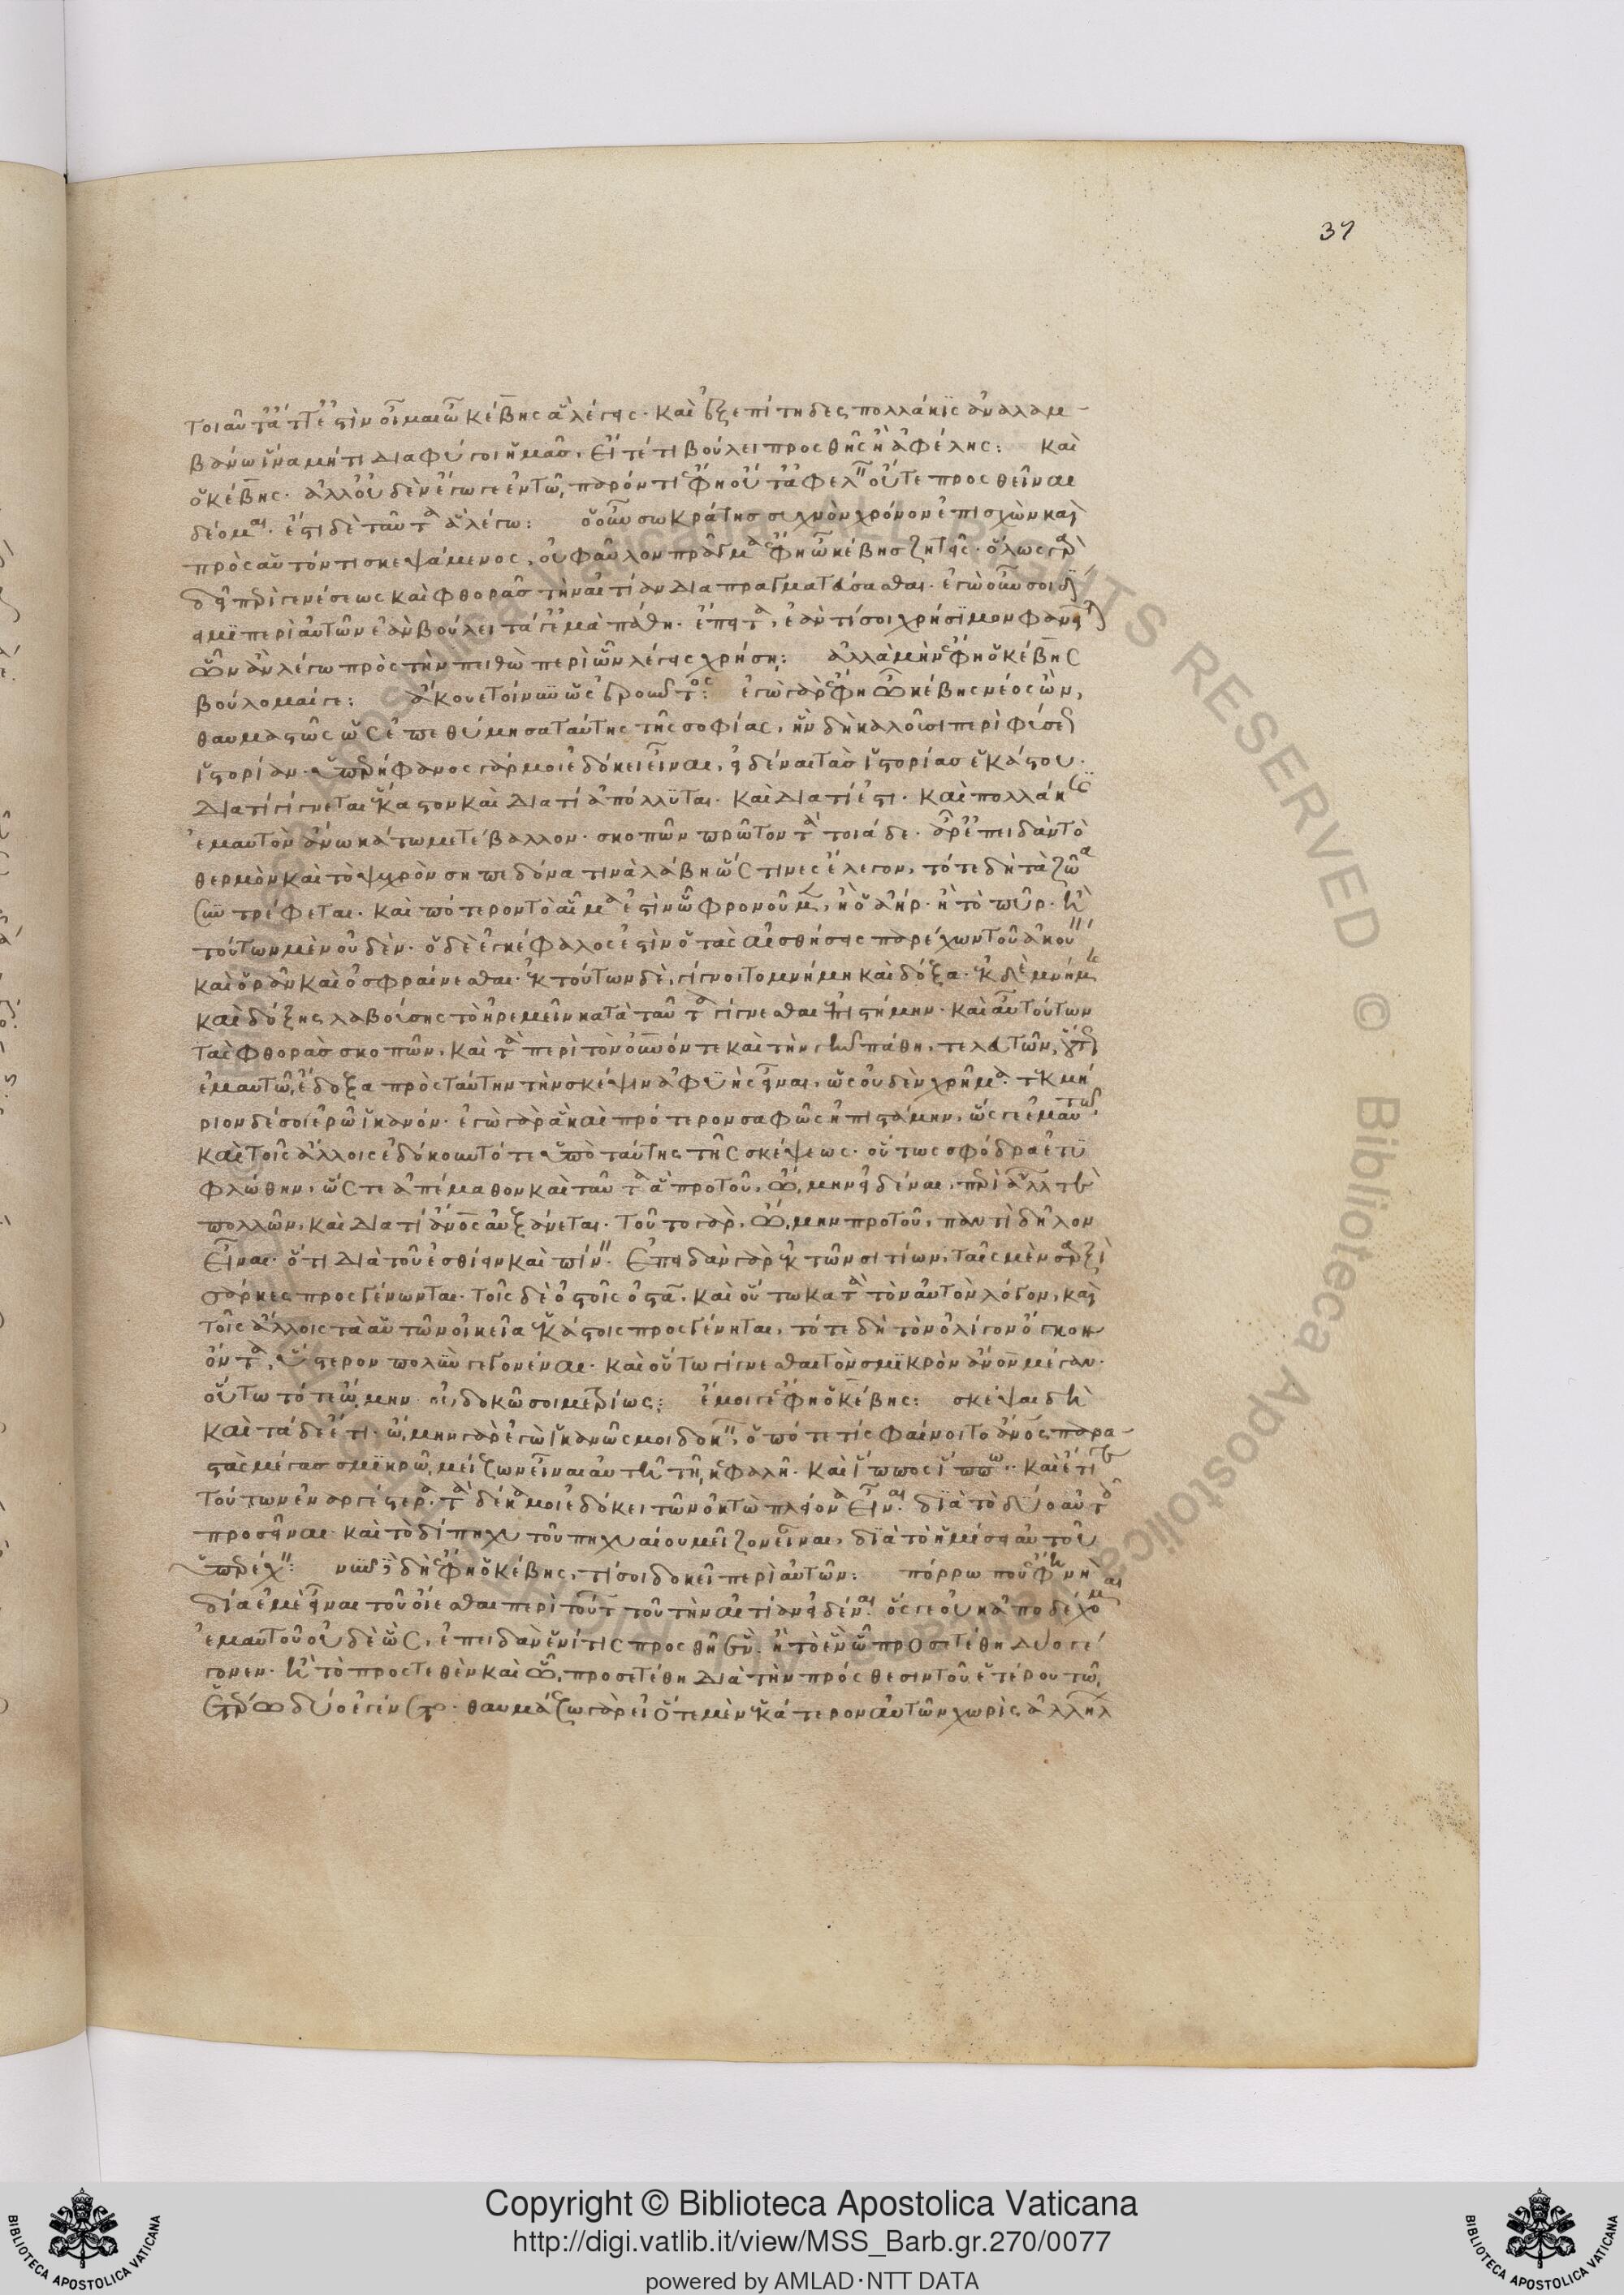 37
τοιαῦτά τί ἐστιν οἶμαι ὦ κέβης ἃ λέγεις. καὶ ἐξεπίτηδες πολλάκις ἀναλαμ-
βάνω ἵνα μήτι διαφύγοι ἡμᾶς. εἴτέ τι βούλει προσθῇς ἢ ἀφέλης: καὶ
ὁ κέβης. ἀλλ οὐδὲν ἔγωγε ἐν τῶ παρόντι ἔφη οὔτ ἀφελεῖν οὔτε προσθεῖναι
δέομαι. ἔστι δὲ ταῦτα ἃ λέγω: ὁ οὖν σωκράτης συχνὸν χρόνον ἐπισχὼν καὶ
πρὸς αὑτόν τι σκεψάμενος, οὐ φαῦλον πρᾶγμα ἔφη ὦ κέβης ζητεῖς. ὅλως γὰρ
δεῖ περὶ γενέσεως καὶ φθορᾶς τὴν αἰτίαν διαπραγματεύσασθαι. ἐγὼ οὖν σοι δί
ειμι περὶ αὐτῶν ἐὰν βούλει τά γε ἐμὰ πάθη. ἔπειτα, ἐάν τί σοι χρήσιμον φανῆ
ὧν ἂν λέγω πρὸς τὴν πειθὼ περὶ ὧν λέγεις χρήση: ἀλλὰ μὴν ἔφη ὁ κέβης
βούλομαί γε: ἄκουε τοίνυν ὡς ἐροῦντος: ἐγὼ γὰρ ἔφη ὦ κέβης νέος ὢν,
θαυμαστῶς ὡς ἐπεθύμησα ταύτης τῆς σοφίας, ἣν δὴ καλοῦσι περὶ φύσεως
ἱστορίαν. ὑπερήφανος γάρ μοι ἐδόκει εἶναι, εἰδέναι τὰς ἱστορίας ἑκάστου.
διατί γίγνεται ἕκαστον καὶ διατί ἀπόλλυται. καὶ διατί ἔστι. καὶ πολλάκις
ἐμαυτὸν ἄνω κάτω μετέβαλλον. σκοπῶν πρῶτον τὰ τοιάδε. ἆρ ἐπειδὰν τὸ
θερμὸν καὶ τὸ ψυχρὸν σηπεδόνα τινὰ λάβη ὥς τινες ἔλεγον, τότε δὴ τὰ ζῶα
συντρέφεται. καὶ πότερον τὸ αἷμά ἐστιν ὧ φρονοῦμεν, ἢ ὁ ἀήρ. ἢ τὸ πῦρ. ἢ
τούτων μὲν οὐδὲν. ὁ δὲ ἐγκέφαλος ἐστὶν ὁ τὰς αἰσθήσεις παρέχων τοῦ ἀκούειν
καὶ ὁρᾶν καὶ ὀσφραίνεσθαι. ἐκ τούτων δὲ, γίγνοιτο μνήμη καὶ δόξα. ἐκ δὲ μνήμης
καὶ δόξης λαβούσης τὸ ἠρεμεῖν κατὰ ταῦτα γίγνεσθαι ἐπιστήμην. καὶ αὖ τούτων
τὰς φθορὰς σκοπῶν, καὶ τὰ περὶ τὸν οὐνόν τε καὶ τὴν γῆν πάθη, τελευτῶν, οὕτως
ἐμαυτῶ ἔδοξα πρὸς ταύτην τὴν σκέψιν ἀφυὴς εἶναι, ὡς οὐδὲν χρῆμα. τεκμή
ριον δέ σοι ἐρῶ ἱκανόν. ἐγὼ γὰρ ἃ καὶ πρότερον σαφῶς ἠπιστάμην, ὥς γε ἐμαυτῶ
καὶ τοῖς ἄλλοις ἐδόκουν τότε ὑπὸ ταύτης τῆς σκέψεως. οὕτω σφόδρα ἐτυ
φλώθην, ὥστε ἀπέμαθον καὶ ταῦτα ἃ προτοῦ, ὤμην εἰδέναι, περὶ ἄλλων τε
πολλῶν, καὶ διατί ἄνος αὐξάνεται. τοῦτο γὰρ, ὤμην προτοῦ, παντὶ δῆλον
εἶναι. ὅτι διὰ τοῦ ἐσθίειν καὶ πίνειν. ἐπειδὰν γὰρ ἐκ τῶν σιτίων, ταῖς μὲν σαρξὶ
σάρκες προσγένωνται. τοῖς δὲ ὀστοῖς ὀστᾶ. καὶ οὕτω κατὰ τὸν αὐτὸν λόγον, καὶ
τοῖς ἄλλοις τὰ αὑτῶν οἰκεῖα ἑκάστοις προσγένηται, τότε δὴ τὸν ὀλίγον ὄγκον
ὄντα, ὕστερον πολὺν γεγονέναι. καὶ οὕτω γίγνεσθαι τὸν σμικρὸν ἄνον μέγαν.
οὕτω τότε ὤμην. οὐ δοκῶ σοι μετρίως: ἔμοιγε ἔφη ὁ κέβης: σκέψαι δὴ
καὶ τάδε ἔτι. ὤμην γὰρ ἐγὼ ἱκανῶς μοι δοκεῖν, ὁπότε τὶς φαίνοιτο ἄνος παρα-
στὰς μέγας σμικρῶ, μείζων εἶναι αὐτῆ τῆ κεφαλῆ. καὶ ἵππος ἵππω. καὶ ἔτι γε
τούτων ἐναργέστερα. τὰ δέκα μοι ἐδόκει τῶν ὀκτὼ πλείονα εἶναι. διὰ τὸ δύο αὐτὸ
προσεῖναι. καὶ τὸ δίπηχυ τοῦ πηχυαίου μεῖζον εἶναι, διὰ τὸ ἡμίσει αὐτοῦ
ὑπερέχειν: νῦν δὲ δὴ ἔφη ὁ κέβης, τί σοι δοκεῖ περὶ αὐτῶν: πόρρω που ἔφη νὴ
δία ἐμὲ εἶναι τοῦ οἴεσθαι περὶ τούτων του τὴν αἰτίαν εἰδέναι. ὅς γε οὐκ ἀποδέχομαι
ἐμαυτοῦ οὐδὲ ὡς, ἐπειδὰν ἑνί τις προσθῆ ἓν. ἢ τὸ ἓν ὧ προσετέθη δύο γέ
γονεν. ἢ τὸ προστεθὲν καὶ ὧ προσετέθη διὰ τὴν πρόσθεσιν τοῦ ἑτέρου τῶ
ἑτέρω δύο ἐγένετο. θαυμάζω γὰρ εἰ ὅτε μὲν ἑκάτερον αὐτῶν χωρὶς ἀλλήλων
Copyright © Biblioteca Apostolica Vaticana
http://digi.vatlib.it/view/MSS_Barb.gr.270/0077
powered by AMLAD·NTT DATA
BIBLIOTECA APOSTOLICA VATICANA
BIBLIOTECA APOSTOLICA VATICANA